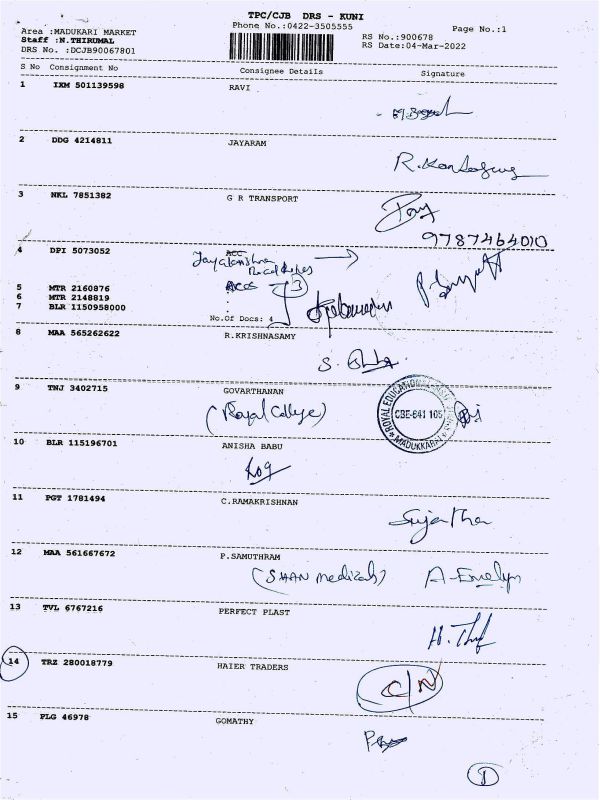 TPC/CJB DRS - KUNI
Area :MADUKARI MARKET
Phone No.:0422-3505555
Page No.:1
Staff :N.THIRUMAL
RS No.:900678
DRS No. :DCJB90067801
RS Date:04-Mar-2022
S No Consignment No Consignee Details Signature
1 IXM 501139598 RAVI
2 DDG 4214811 JAYARAM
R.
3 NKL 7851382 G R TRANSPORT
9787464010
4 DPI 5073052 ACC
5 MTR 2160876 ACC
3
6 MTR 2148819
7 BLR 1150958000
No.Of Docs: 4
8 MAA 565262622 R.KRISHNASAMY
S.
9 TNJ 3402715 GOVARTHANAN
(Royal College)
ROYAL EDUCATIONAL
CBE-641 105
MADUKKARAI
10 BLR 115196701 ANISHA BABU
11 PGT 1781494 C.RAMAKRISHNAN
Sujatha
12 MAA 561667672 P.SAMUTHRAM
(SHAN medicals) A-Emelyn
13 TVL 6767216 PERFECT PLAST
H.
14 TRZ 280018779 HAIER TRADERS
C/N
15 PLG 46978 GOMATHY